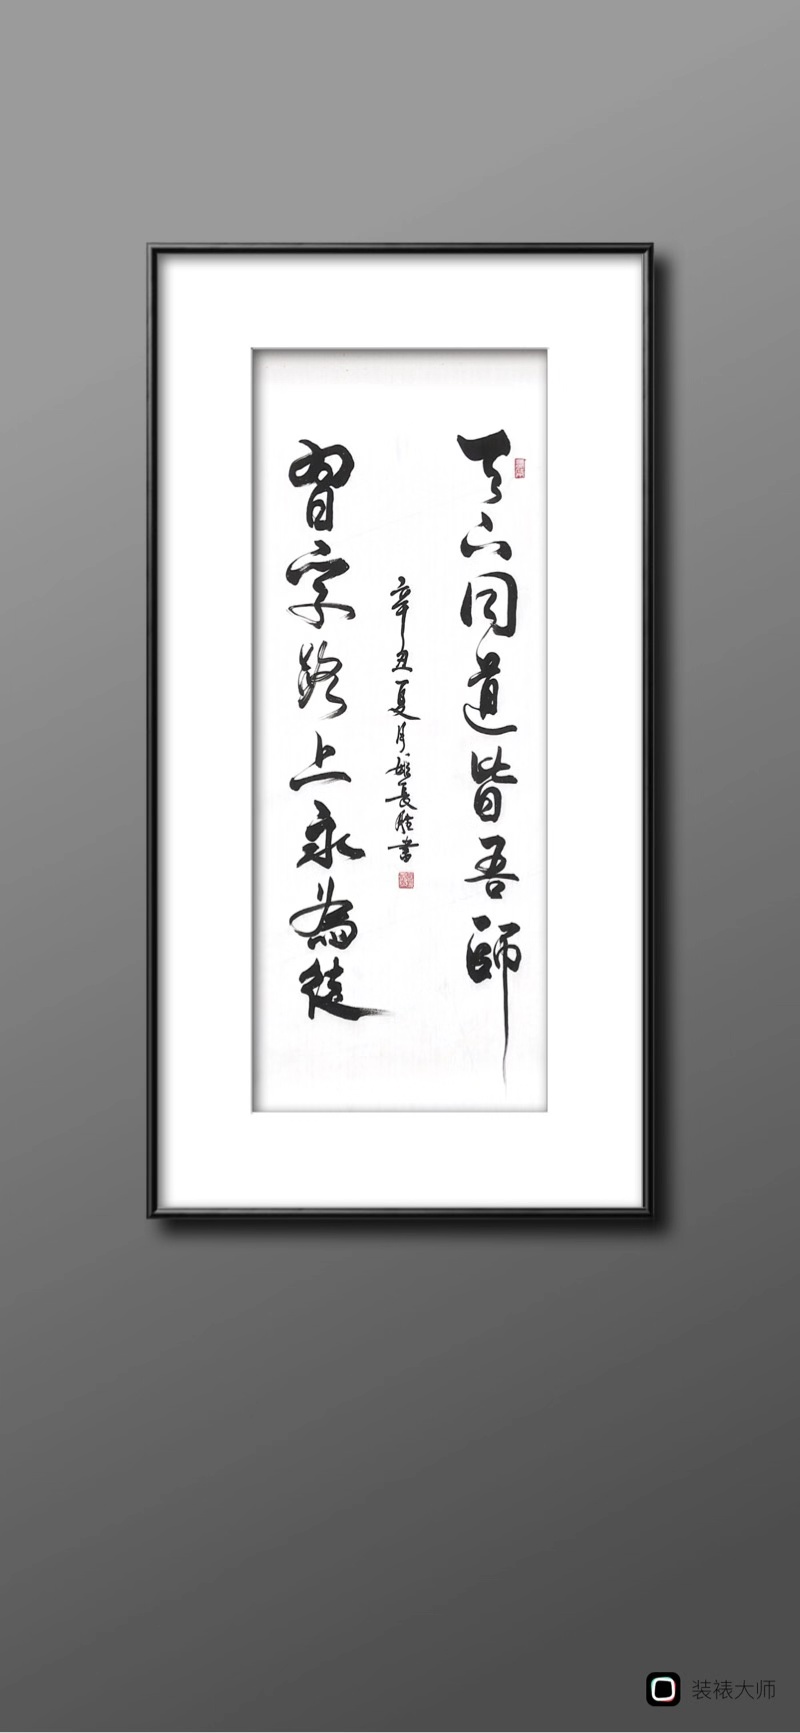 天下同道皆吾師
習字路上永為徒
辛丑夏月姬長
書
装裱大师